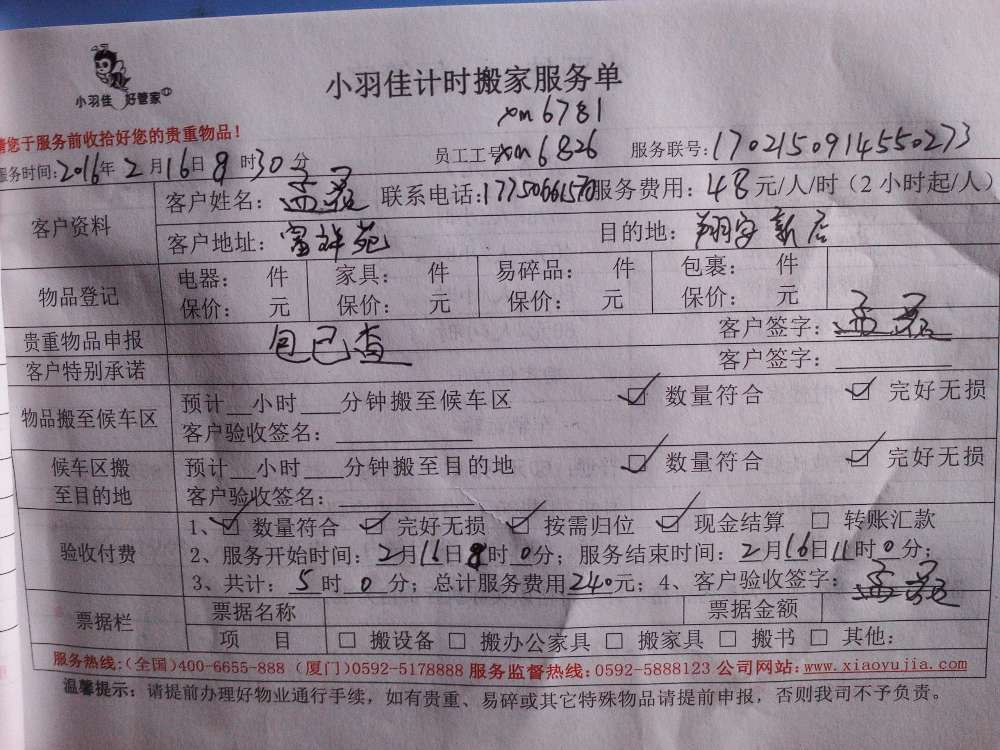 小羽佳 好管家
小羽佳计时搬家服务单
xm6781
请您于服务前收拾好您的贵重物品！
员工工号:xm6826 服务联号:1702150914550273
服务时间:2016年2月16日8时30分
客户资料 客户姓名：孟 联系电话:17750661570 服务费用：48元/人/时（2小时起/人）
客户地址：富祥苑 目的地：翔安新店
物品登记 电器： 件 家具： 件 易碎品： 件 包裹： 件
保价： 元 保价： 元 保价： 元 保价： 元
贵重物品申报 包已查 客户签字：孟
客户特别承诺 客户签字：
物品搬至候车区 预计__小时___分钟搬至候车区 ☑ 数量符合 ☑ 完好无损
客户验收签名：
候车区搬至目的地 预计__小时___分钟搬至目的地 ☑ 数量符合 ☑ 完好无损
客户验收签名：
验收付费 1、☑ 数量符合 ☑ 完好无损 ☑ 按需归位 ☑ 现金结算 □ 转账汇款
2、服务开始时间：2月16日8时0分；服务结束时间：2月16日11时0分；
3、共计：5时0分；总计服务费用240元；4、客户验收签字：孟
票据栏 票据名称 票据金额
项 目 □ 搬设备 □ 搬办公家具 □ 搬家具 □ 搬书 □ 其他：
服务热线:(全国)400-6655-888（厦门)0592-5178888 服务监督热线：0592-5888123 公司网站:www.xiaoyujia.com
温馨提示：请提前办理好物业通行手续，如有贵重、易碎或其它特殊物品请提前申报，否则我司不予负责。